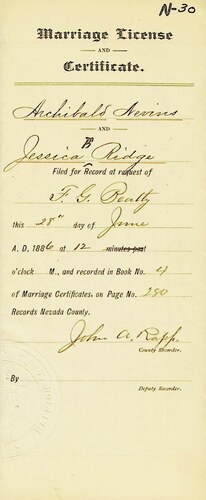 N-30
Marriage License
AND
Certificate.
Archibald Nevins
AND
B
Jessica Ridge
Filed for Record at request of
F. G. Beatty
this 28" day of June
A. D. 1886 at 12 minutes past
o'clock M., and recorded in Book No. 4
of Marriage Certificates, on Page No. 280
Records Nevada County.
John A. Rapp.
County Recorder.
By
Deputy Recorder.